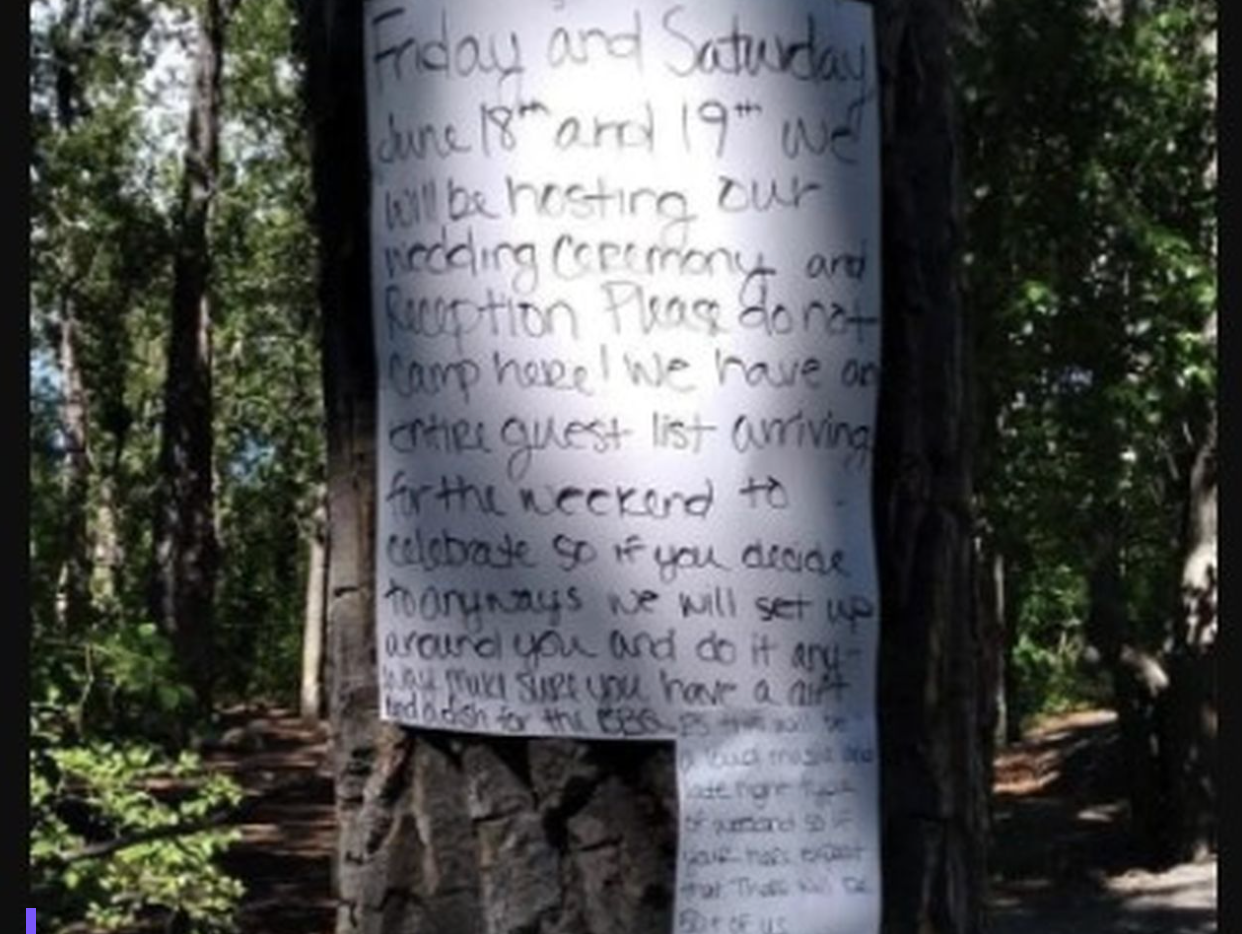 Friday and Saturday
June 18th and 19th we
will be hosting our
wedding ceremony and
Reception Please do not
Camp here! We have an
entire guest list arriving
for the weekend to
celebrate so if you decide
to anyways we will set up
around you and do it any-
way make sure you have a gift
and a dish for the BBQ PS this will be
a loud music and
late night type
of weekend so if
your here expect
that There will be
50+ of us